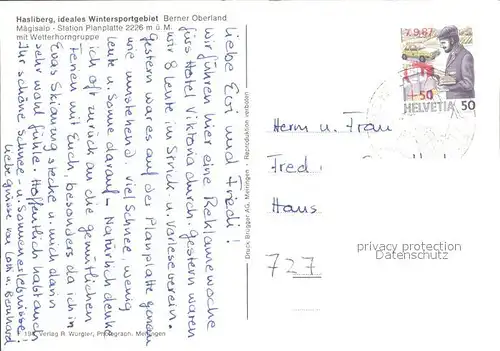 Hasliberg, ideales Wintersportgebiet Berner Oberland
Mägisalp - Station Planplatte 2226 m ü. M.
mit Wetterhorngruppe
Liebe Evi und Friedi!
Wir führen hier eine Reklamewoche
fürs Hotel Viktoria durch. Gestern waren
wir 8 Leute im Strick- u. Vorleseverein.
Gestern war es auf der Planplatte genau
wie umstehend, viel Schnee, wenig
Leute u. Sonne darauf - Natürlich denke
ich oft zurück an die gemütlichen
Ferien mit Euch, besonders da ich in
Evas Skianzug stecke u. mich darin
sehr wohl fühle. Hoffentlich habt auch
Ihr schöne Schnee- u. Sonnenerlebnisse!
Liebe Grüsse von u. Bernhard
Verlag R. Würgler, Photograph, Meiringen
Druck Brügger AG, Meiringen - Reproduktion verboten
7.9.87
+50
HELVETIA 50
Herrn u. Frau
Fred
Haus
727
privacy protection
Datenschutz